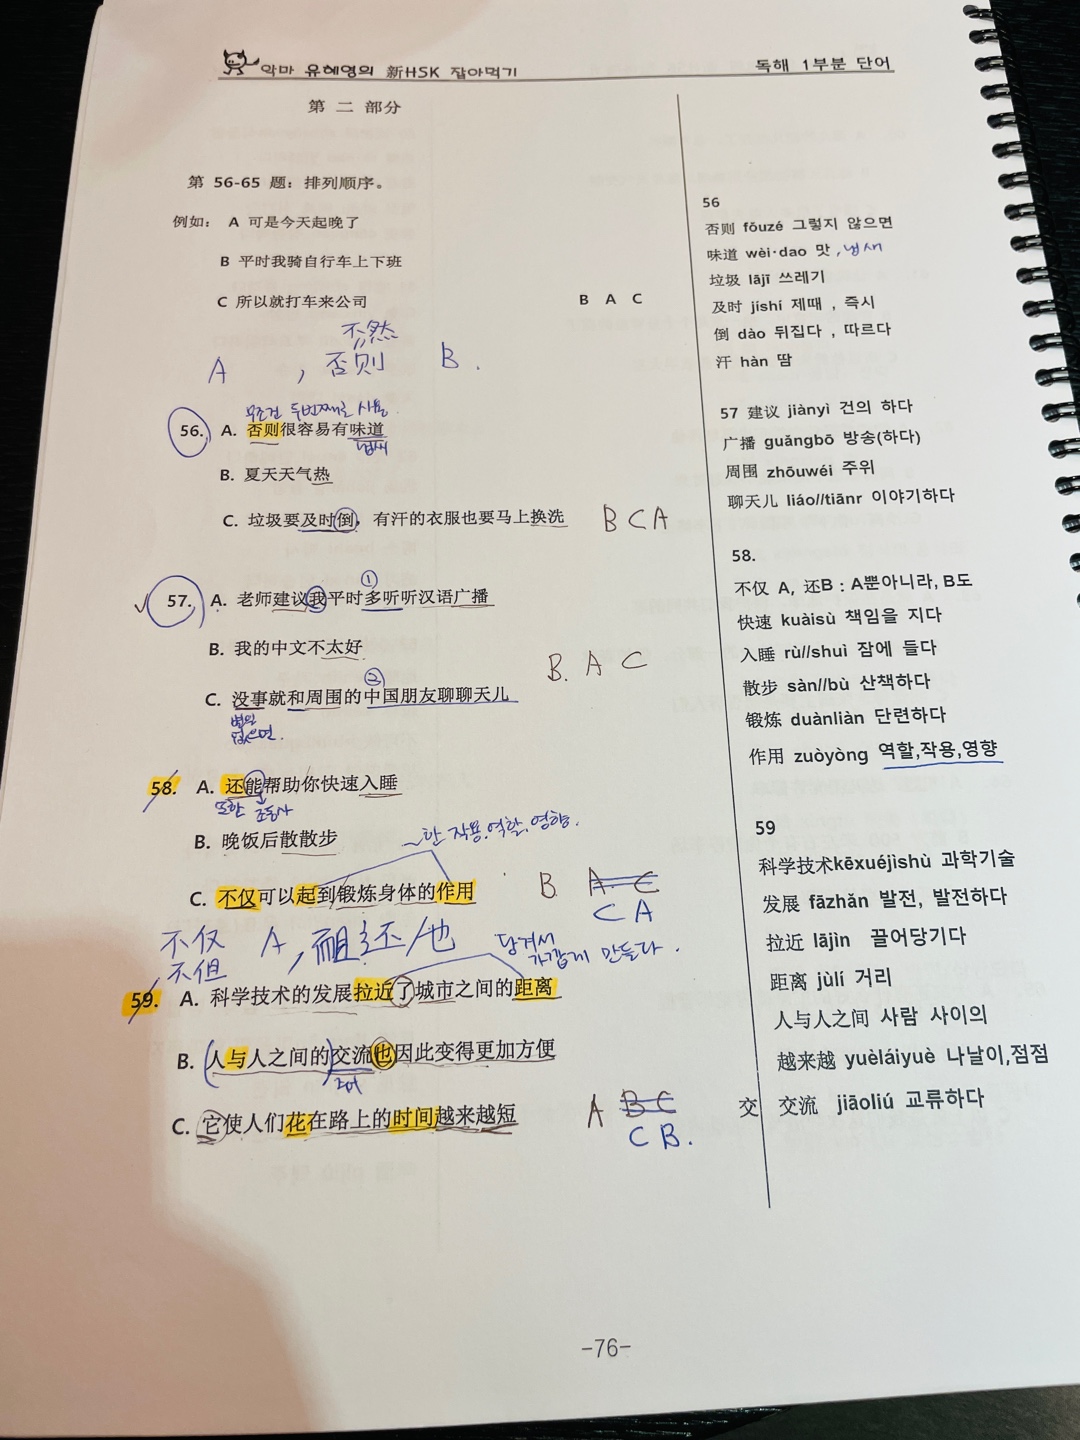 악마 유혜영의 新HSK 잡아먹기
독해 1부분 단어
第 二 部分
第 56-65 题：排列顺序。
例如： A 可是今天起晚了
B 平时我骑自行车上下班
C 所以就打车来公司
B A C
不然
A , 否则 B.
무조건 두번째로 사용
56. A. 否则很容易有味道
냄새
B. 夏天天气热
C. 垃圾要及时倒，有汗的衣服也要马上换洗
B C A
①
57. A. 老师建议我平时多听听汉语广播
B. 我的中文不太好
B. A C
②
C. 没事就和周围的中国朋友聊聊天儿
별일
없으면.
58. A. 还能帮助你快速入睡
또한 조동사
B. 晚饭后散散步
~한 작용.역할.영향.
C. 不仅可以起到锻炼身体的作用
B A C
C A
不仅 A, 而且还/也
不但
당겨서
가깝게 만들다.
59. A. 科学技术的发展拉近了城市之间的距离
B. (人与人之间的)交流也因此变得更加方便
주어
C. 它使人们花在路上的时间越来越短
A B C
C B.
56
否则 fǒuzé 그렇지 않으면
味道 wèi·dao 맛 ,냄새
垃圾 lājī 쓰레기
及时 jíshí 제때 , 즉시
倒 dào 뒤집다 , 따르다
汗 hàn 땀
57 建议 jiànyì 건의 하다
广播 guǎngbō 방송(하다)
周围 zhōuwéi 주위
聊天儿 liáo//tiānr 이야기하다
58.
不仅 A, 还B : A뿐아니라, B도
快速 kuàisù 책임을 지다
入睡 rù//shuì 잠에 들다
散步 sàn//bù 산책하다
锻炼 duànliàn 단련하다
作用 zuòyòng 역할,작용,영향
59
科学技术kēxuéjìshù 과학기술
发展 fāzhǎn 발전, 발전하다
拉近 lājìn 끌어당기다
距离 jùlí 거리
人与人之间 사람 사이의
越来越 yuèláiyuè 나날이,점점
交 交流 jiāoliú 교류하다
-76-